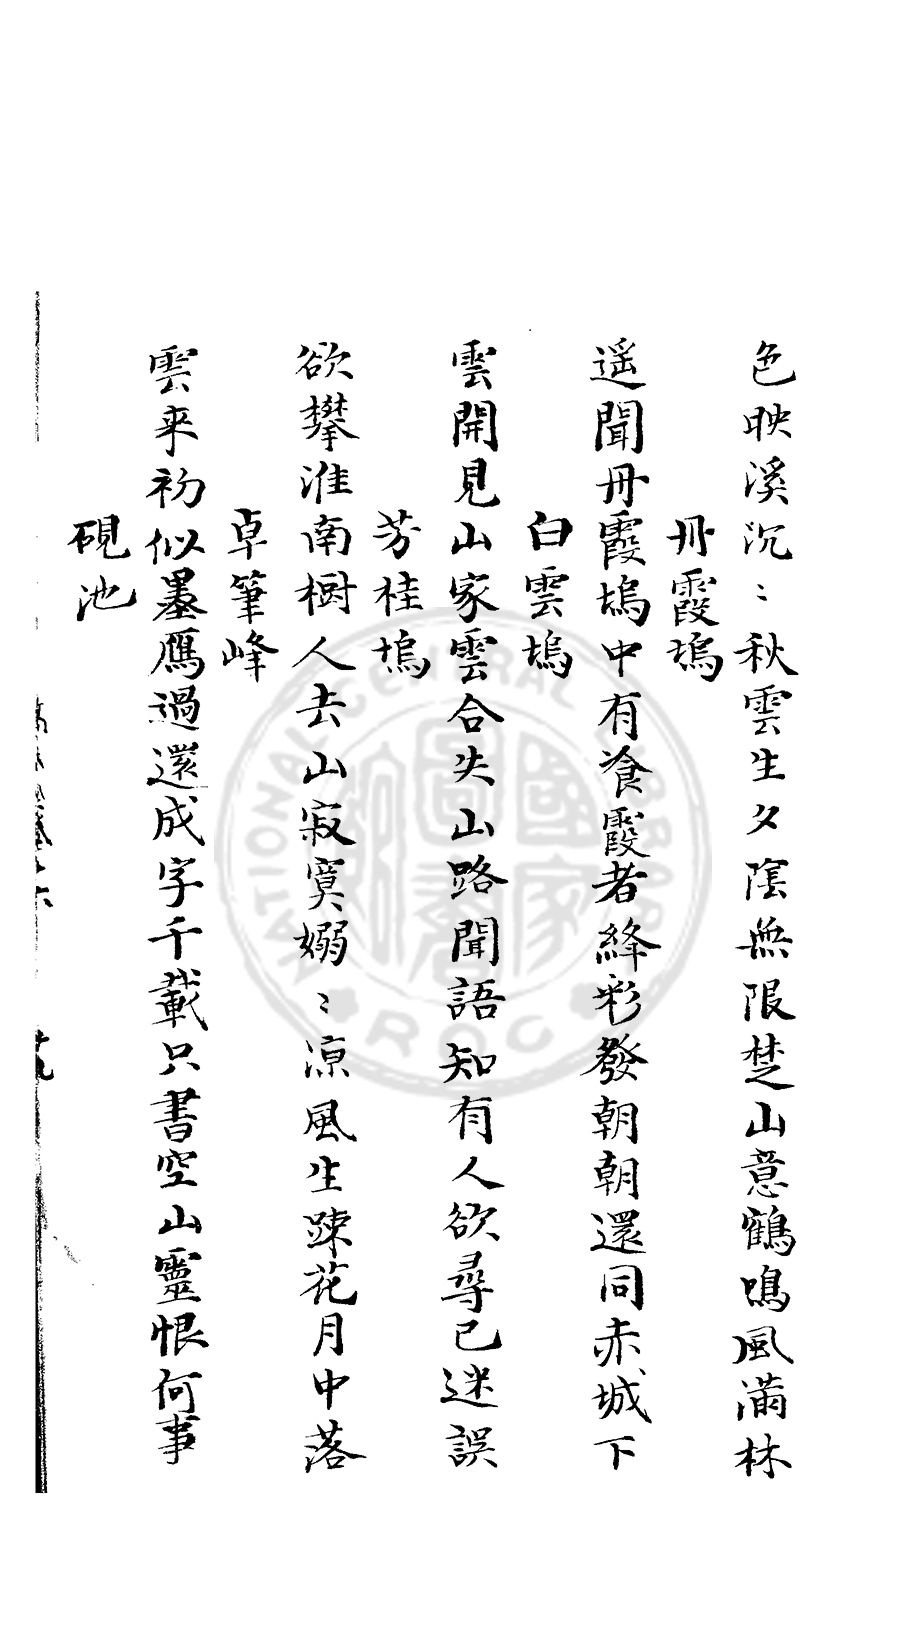 色映溪沉〻秋雲生夕陰無限楚山意鶴鳴風滿林
丹霞塢
遥聞丹霞塢中有飡霞者絳彩發朝朝還同赤城下
白雲塢
雲開見山家雲合失山路聞語知有人欲尋已迷誤
芳桂塢
欲攀淮南樹人去山寂寞嫋〻凉風生踈花月中落
卓筆峰
雲来初似墨鴈過還成字千載只書空山靈恨何事
硯池
NATIONAL CENTRAL LIBRARY
R.O.C
國家圖書館